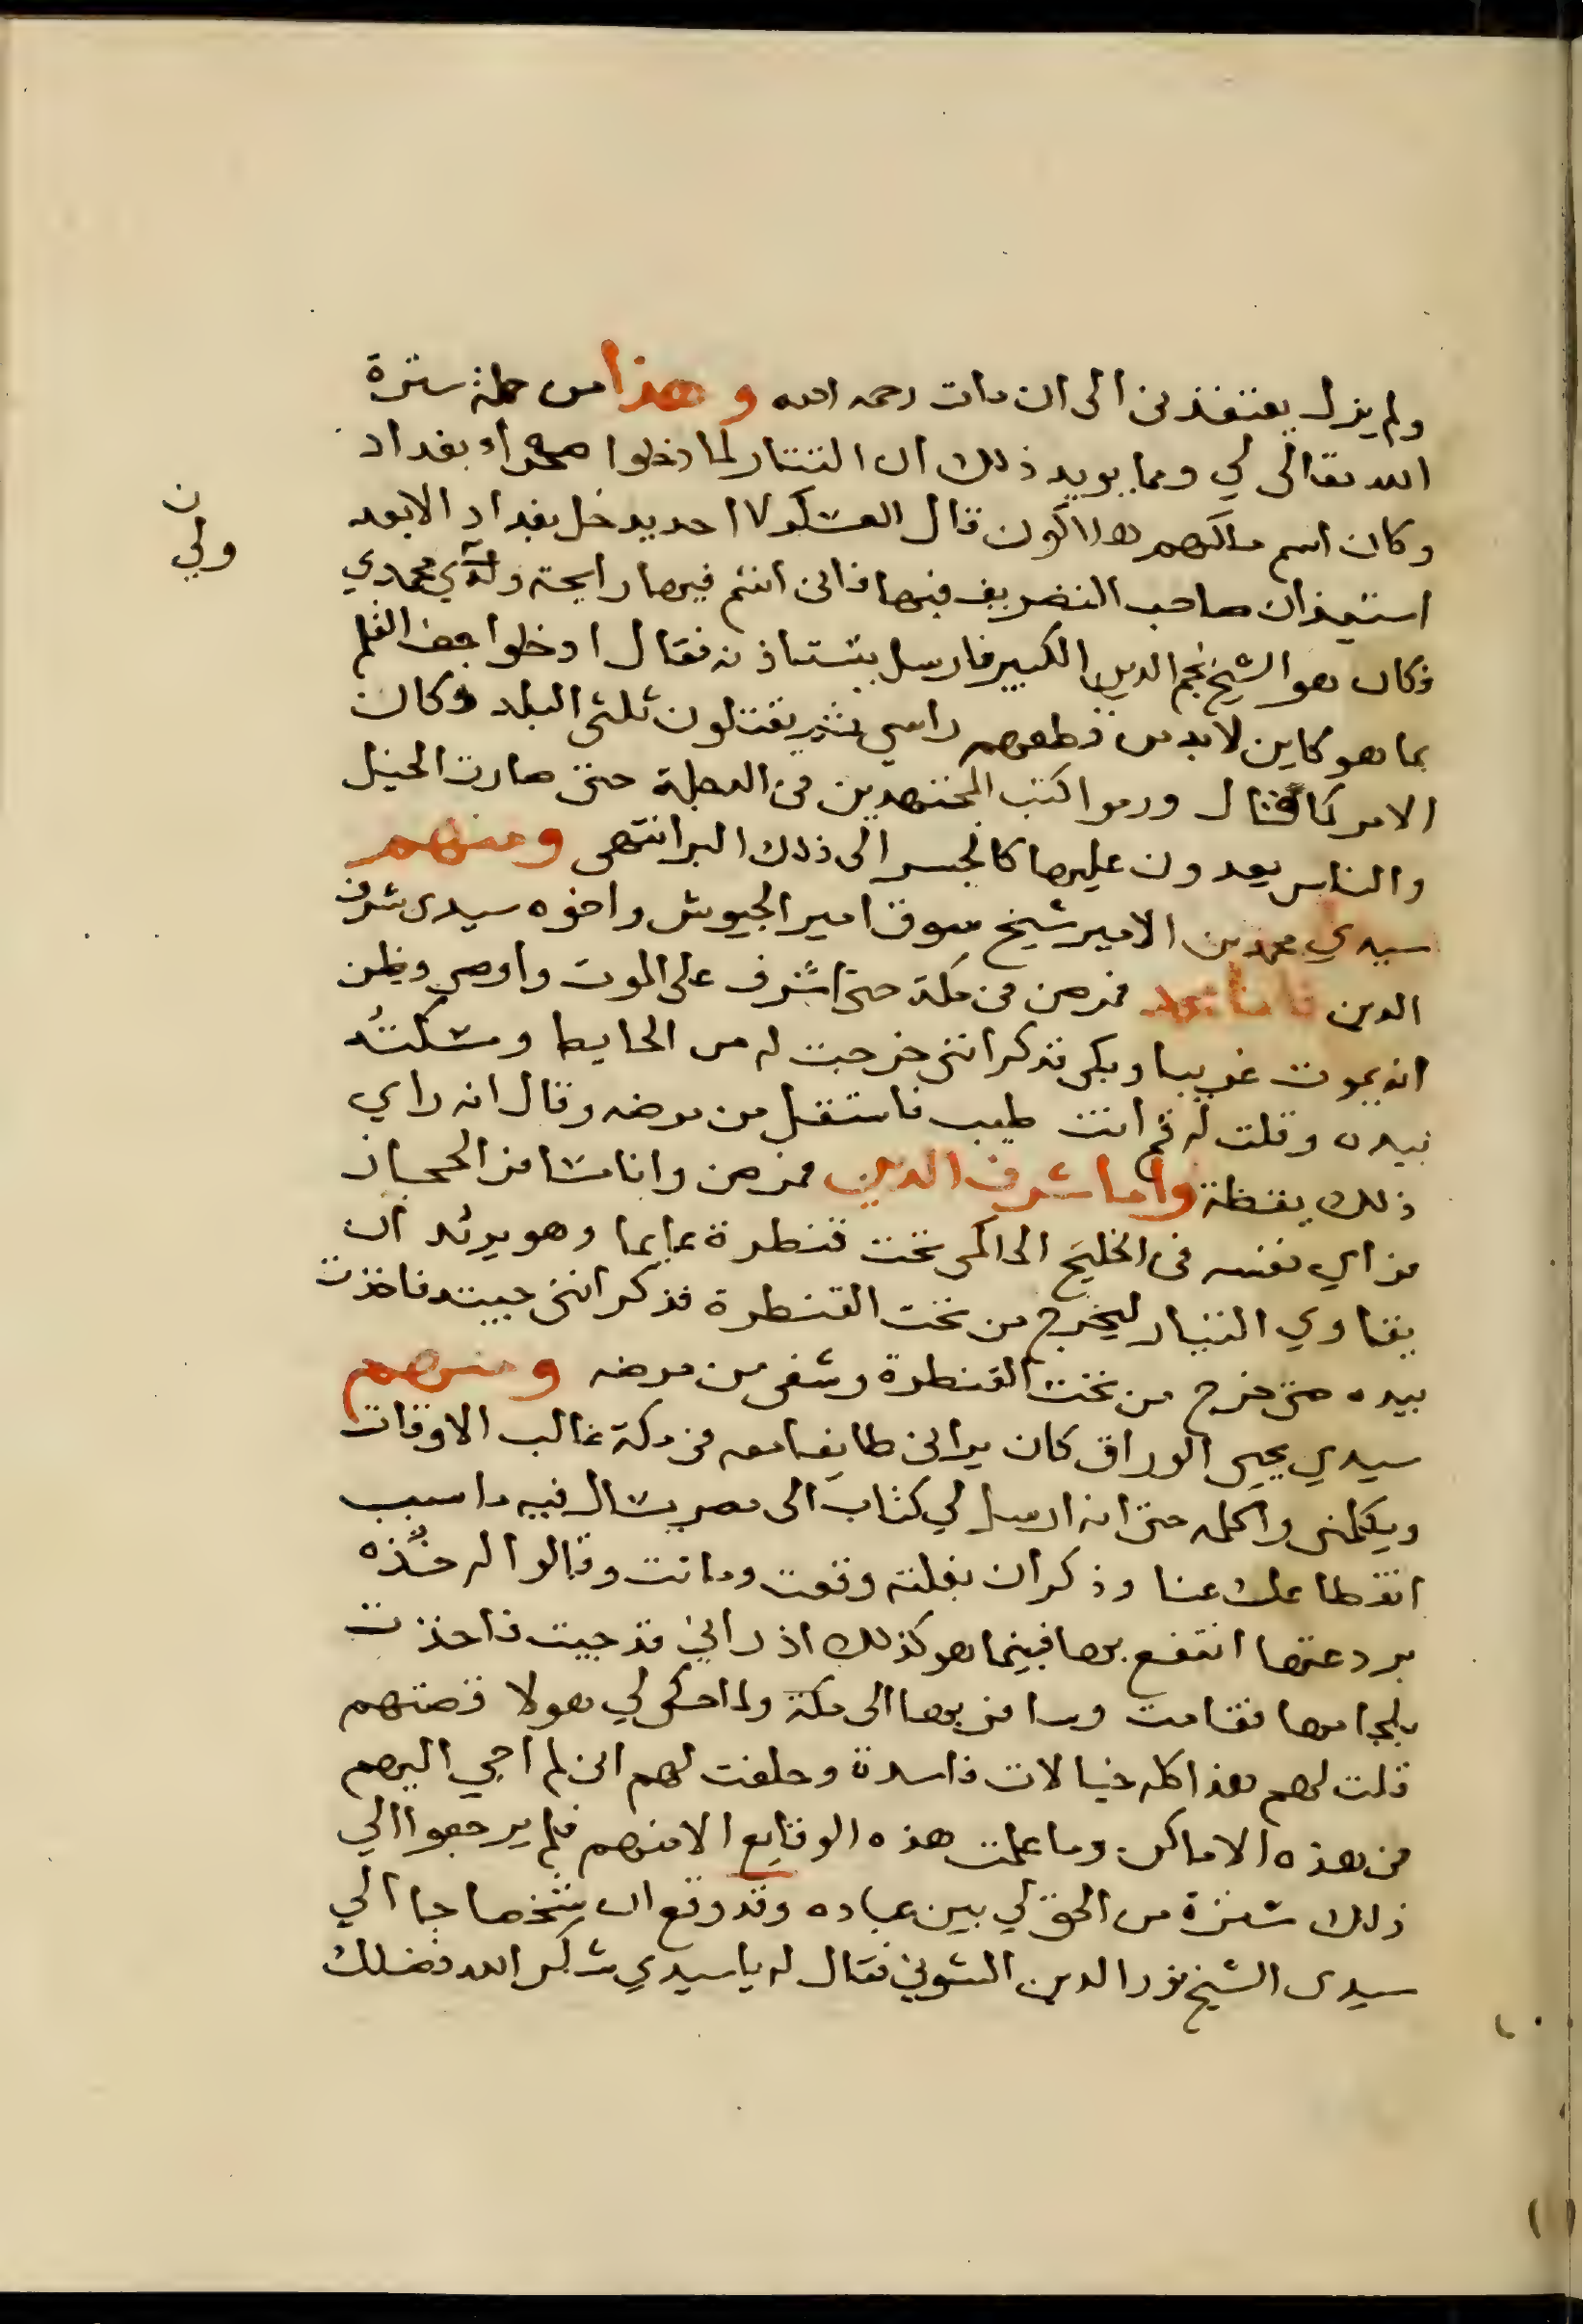 ولم يزل يعتقدني الى ان مات رحمه الله وهذا من جملة سترة
الله تعالى لي ومما يويد ذلك ان التتار لما دخلوا صحراء بغداد
وكان اسم ملكهم هولاكون قال العسكر لا احد يدخل بغداد الا بعد
استيذان صاحب التصريف فيها فاني اشم فيها رايحة ولي محمدي
فكان هو الشيخ نجم الدين الكبير فارسل يستاذنه فقال ادخلوا جف القلم
بما هو كاين لابد من قطعهم راسي ثم يقتلون ثلثي البلد وكان
الامر كما قال ورموا كتب المجتهدين في الدجلة حتى صارت الخيل
والناس يعدون عليها كالجسر الى ذلك البر انتهى ومنهم
سيدي محمد بن الامير شيخ سوق امير الجيوش واخوه سيدي شرف
الدين فاما محمد فمرض في مكة حتى اشرف على الموت واوصي وظن
انه يموت غريبا وبكى فذكر انني خرجت له من الحايط ومسكته
بيده وقلت له قم انت طيب فاستقل من مرضه وقال انه راي
ذلك يقظة واما شرف الدين فمرض وانا مسافر الحجاز
فراي نفسه في الخليج الحاكمي تحت قنطرة عايما وهو يريد ان
يقاوي التيار ليخرج من تحت القنطرة فذكر انني جيته فاخذت
بيده حتى خرج من تحت القنطرة وشفي من مرضه ومنهم
سيدي يحيى الوراق كان يراني طايفا معه في مكة غالب الاوقات
ويكلمني واكلمه حتى انه ارسل لي كتابا الى مصر يسال فيه ما سبب
انقطاعك عنا وذكر ان بغلته وقعت وماتت وقالوا له خذ
بردعتها انتفع بها فبينما هو كذلك اذ راني قد جيت فاخذت
بلجامها فقامت وسافر بها الى مكة ولما حكى لي هولا قصتهم
قلت لهم هذا كله خيالات فاسدة وحلفت لهم اني لم اجي اليهم
في هذه الاماكن وما علمت هذه الوقايع الا منهم فلم يرجعوا الي
ذلك سترة من الحق لي بين عباده وقد وقع ان شخصا جا الي
سيدي الشيخ نور الدين الشوني فقال له يا سيدي شكر الله فضلك
ن
ولي